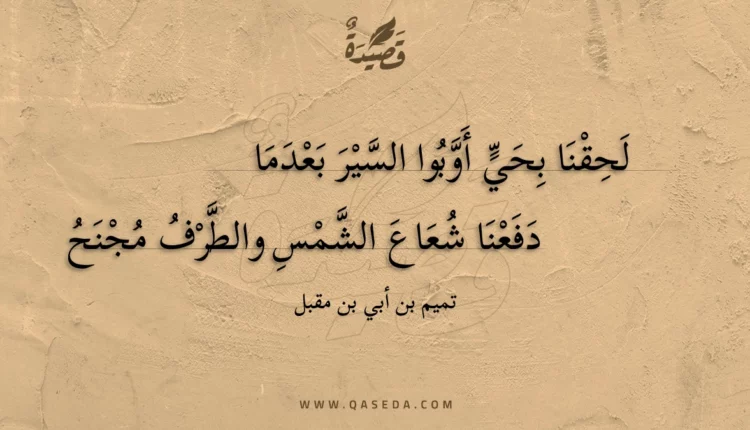 قَصِيدَةٌ
لَحِقْنَا بِحَيٍّ أَوَّبُوا السَّيْرَ بَعْدَمَا
دَفَعْنَا شُعَاعَ الشَّمْسِ والطَّرْفُ مُجْنَحُ
تميم بن أبي بن مقبل
WWW.QASEDA.COM